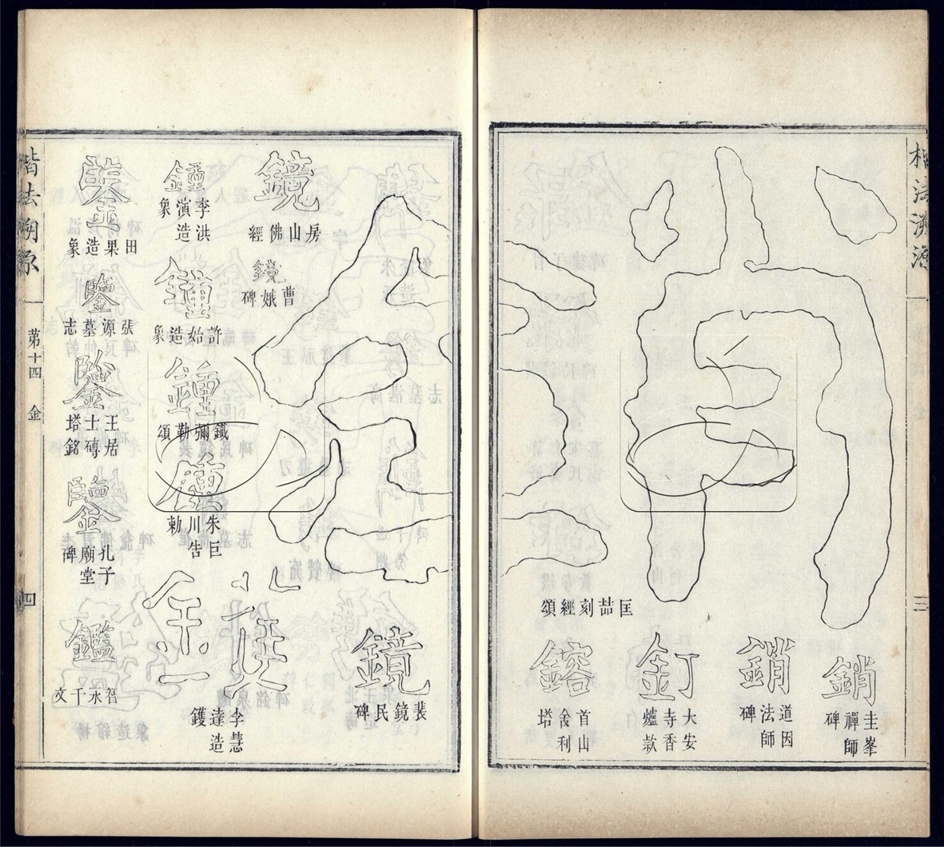 楷法溯源
三
銷
匡喆刻經頌
銷
圭峯禪師碑
銷
道因法師碑
釘
大安寺香爐款
鎔
首山舍利塔
鏡
裴鏡民碑
鏡
房山佛經
鏡
曹娥碑
鑊
李慧達造鑊
鍾
李洪演造象
鍾
許始造象
鍾
鐵彌勒頌
朱巨川告勅
鑒
田果造象
鑒
張源墓志
鑒
王居士磚塔銘
鑒
孔子廟堂碑
鑑
智永千文
楷法溯源
第十四
金
四